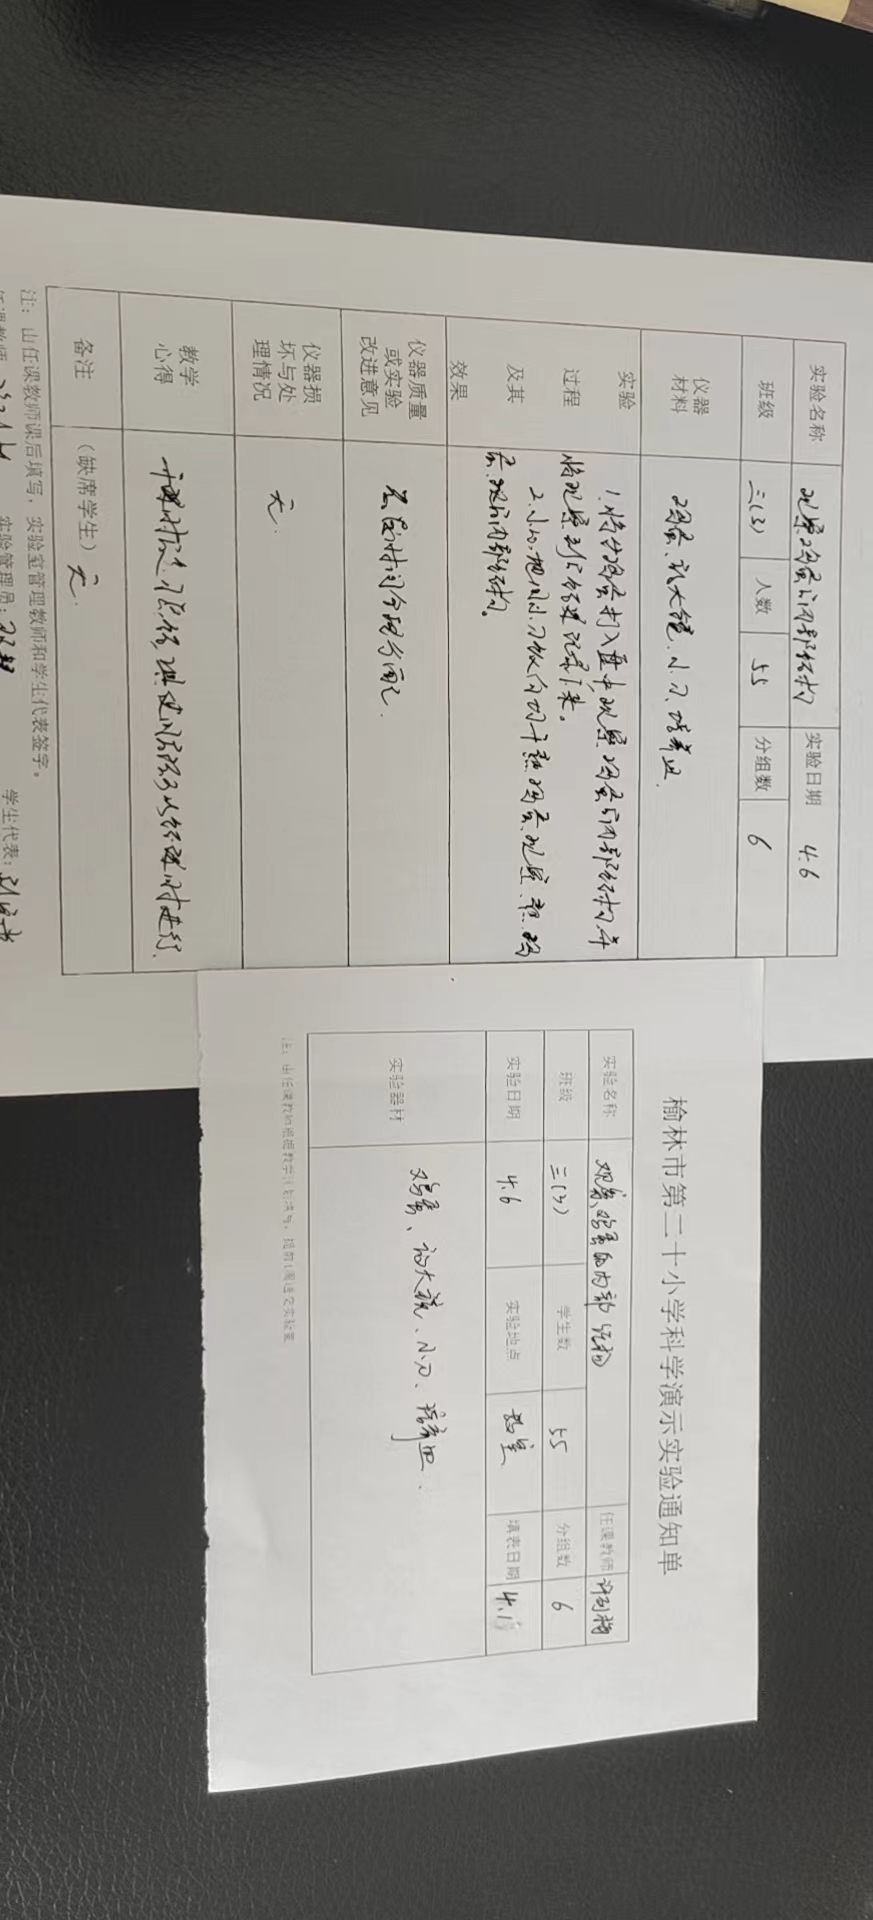 实验名称 观察鸡蛋的内部结构 实验日期 4.6
班级 三(3) 人数 55 分组数 6
仪器
材料
鸡蛋、放大镜、小刀、培养皿.
实验
过程
及其
效果
1.将生鸡蛋打入盘中,观察鸡蛋的内部结构,并
将观察到的结果记录下来。
2.小心地用小刀纵向切开熟鸡蛋,观察熟鸡
蛋的内部结构。
仪器质量
或实验
改进意见
仪器损
坏与处
理情况
无.
教学
心得
备注
(缺席学生) 无.
注:由任课教师课后填写,实验室管理教师和学生代表签字。
任课教师 实验管理员: 学生代表:
榆林市第二十小学科学演示实验通知单
实验名称 观察鸡蛋的内部结构 任课教师
班级 三(3) 学生数 55 分组数 6
实验日期 4.6 实验地点 教室 填表日期 4.1
实验器材 鸡蛋、放大镜、小刀、培养皿.
注:由任课教师根据教学计划填写,提前1周送交实验室